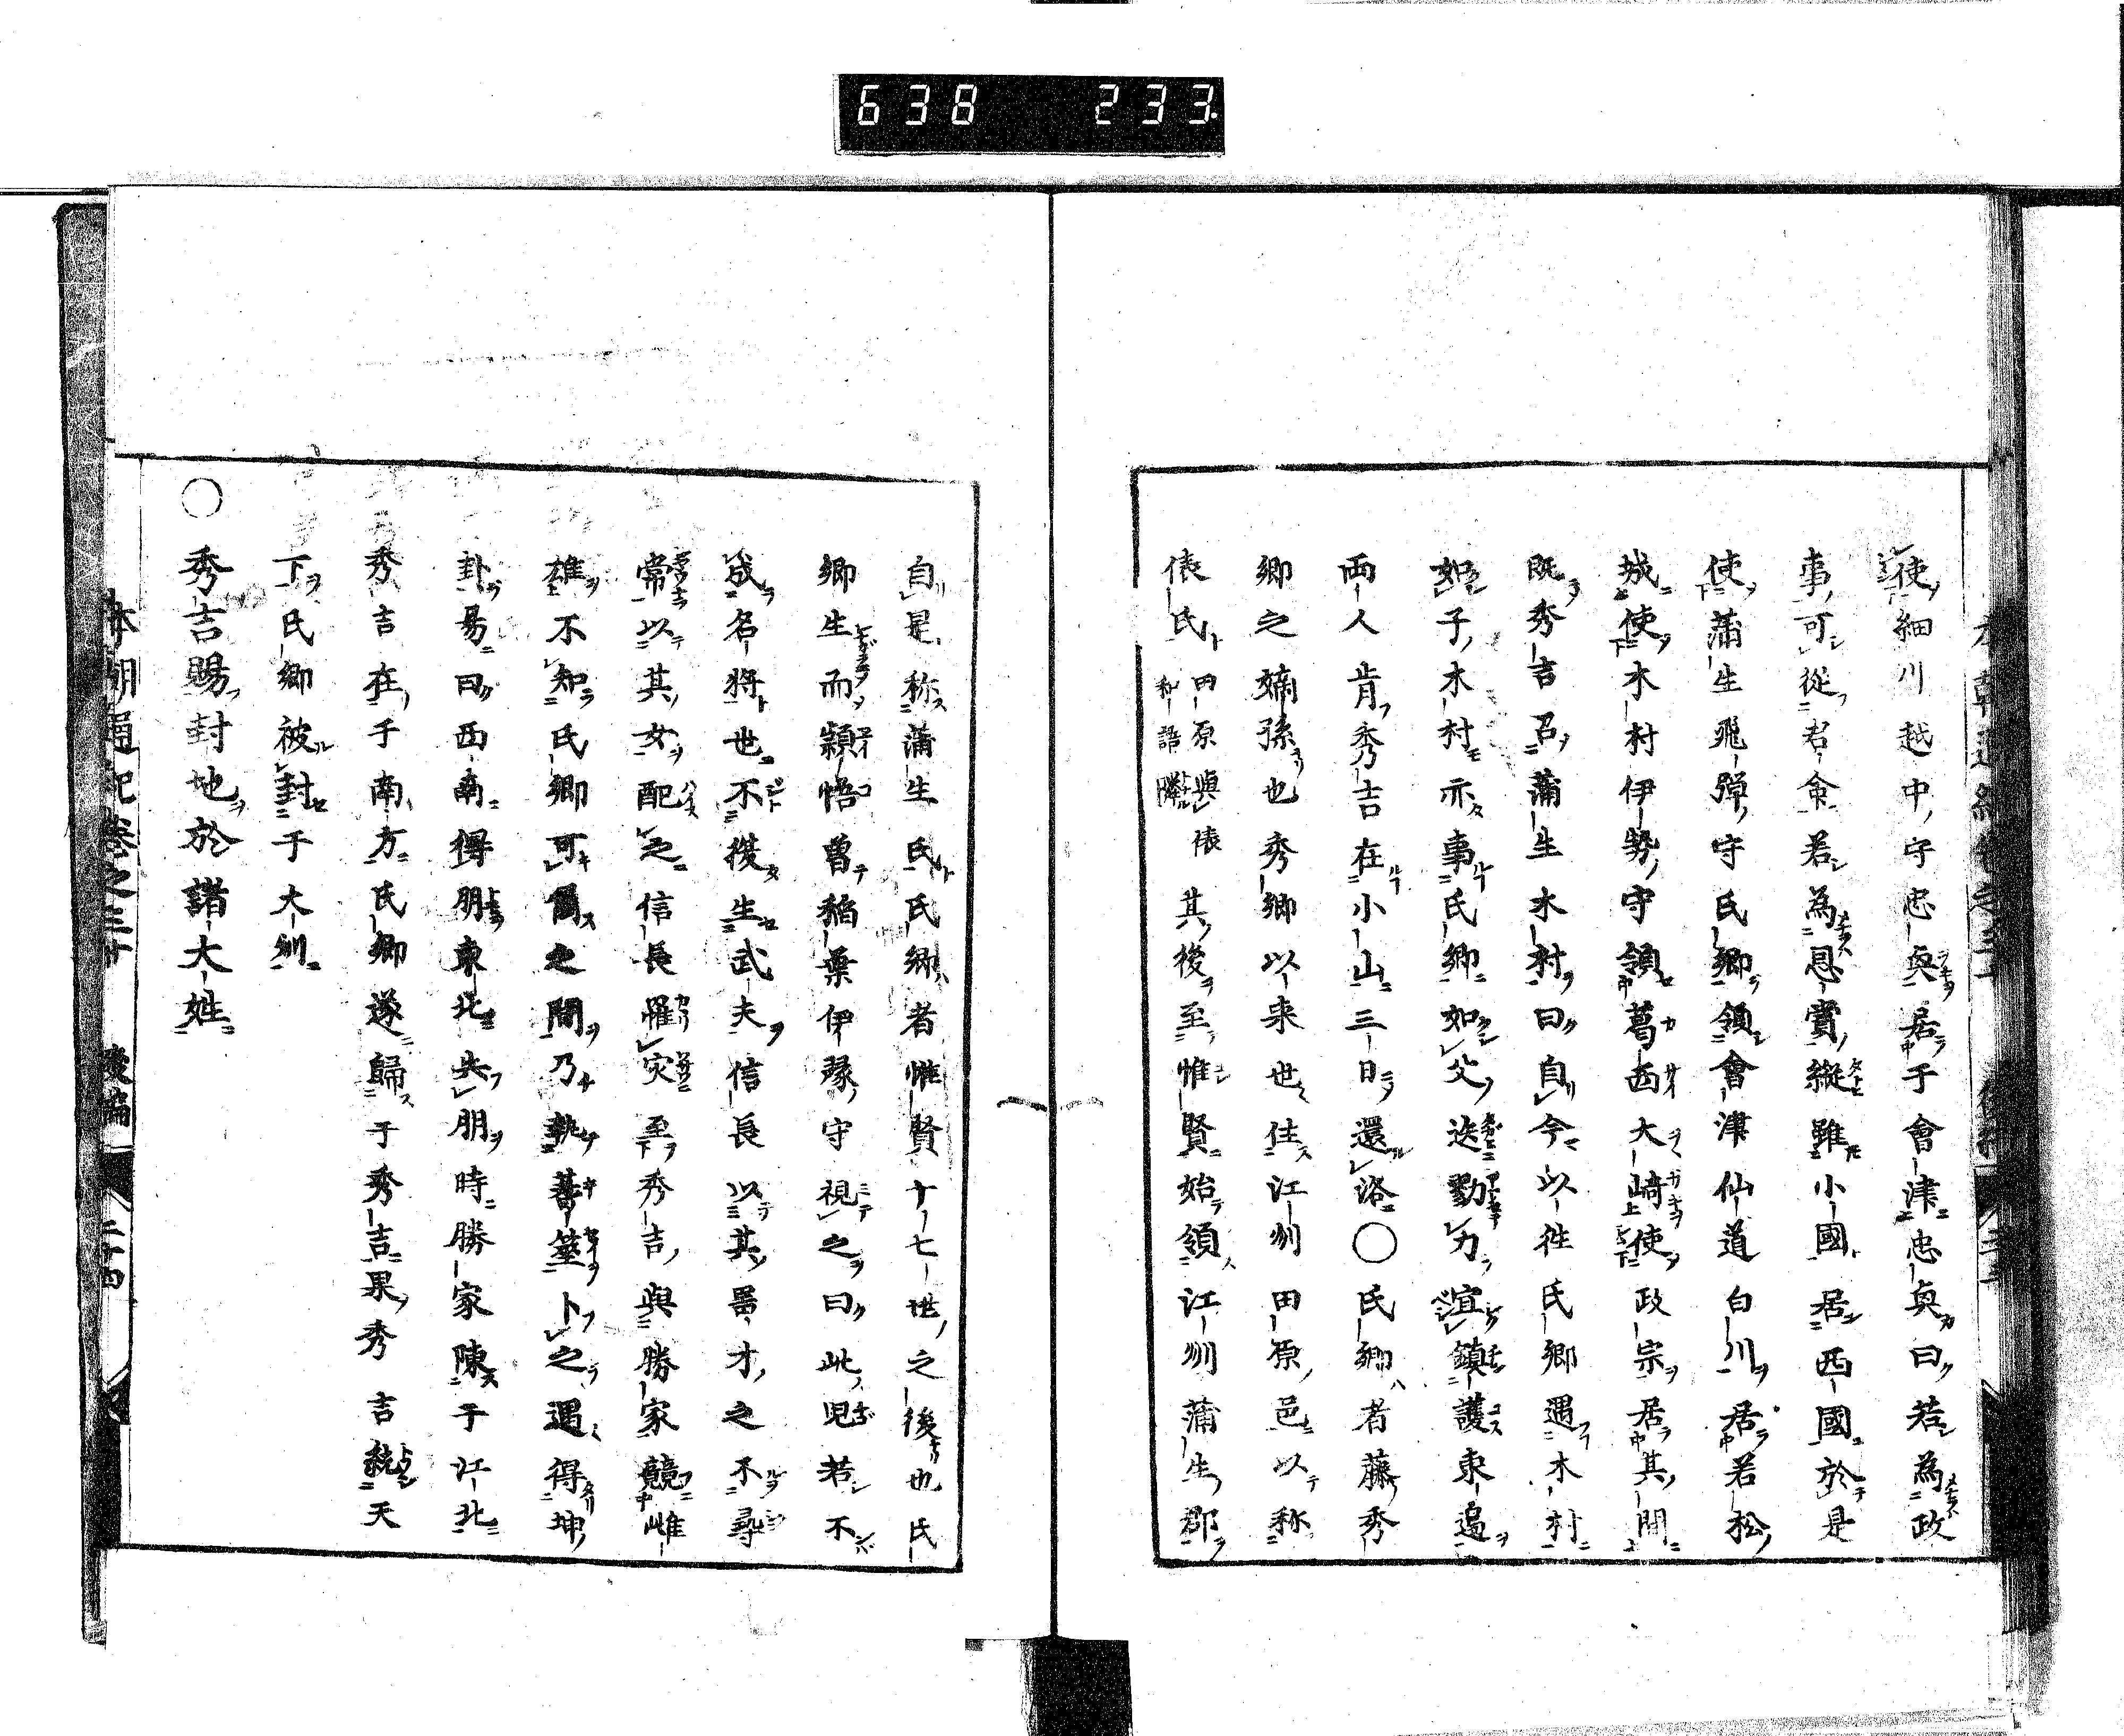 638 233
使細川越中守忠奥居于會津忠奥曰若為政
事可從君命若為恩賞縱雖小國居西國於是
使蒲生飛彈守氏卿領會津仙道白川居若松
城使木村伊勢守領葛西大崎使政宗居其間
既秀吉召蒲生木村曰自今以徃氏卿遇木村
如子木村亦事氏卿如父迭勠力宜鎮護東邉
両人肯秀吉在小山三日還洛〇氏卿者藤秀
卿之嫡孫也秀卿以来世住江刕田原邑以称
俵氏田原與俵和語隣其後至惟賢始領江州蒲生郡
自是称蒲生氏氏卿者惟賢十七世之後也氏
卿生而穎悟曽稲葉伊豫守視之曰此児若不
成名将也不復生武夫信長以其噐才之不尋
常以其女配之信長罹灾至秀吉與勝家競雌
雄不知氏卿可属之間乃執蓍筮卜之遇得坤
卦易曰西南得朋東北失朋時勝家陳于江北
秀吉在于南方氏卿遂歸于秀吉果秀吉統天
下氏卿被封于大刕
〇秀吉賜封地於諸大姓
本朝通紀卷之三十 後編 二十四